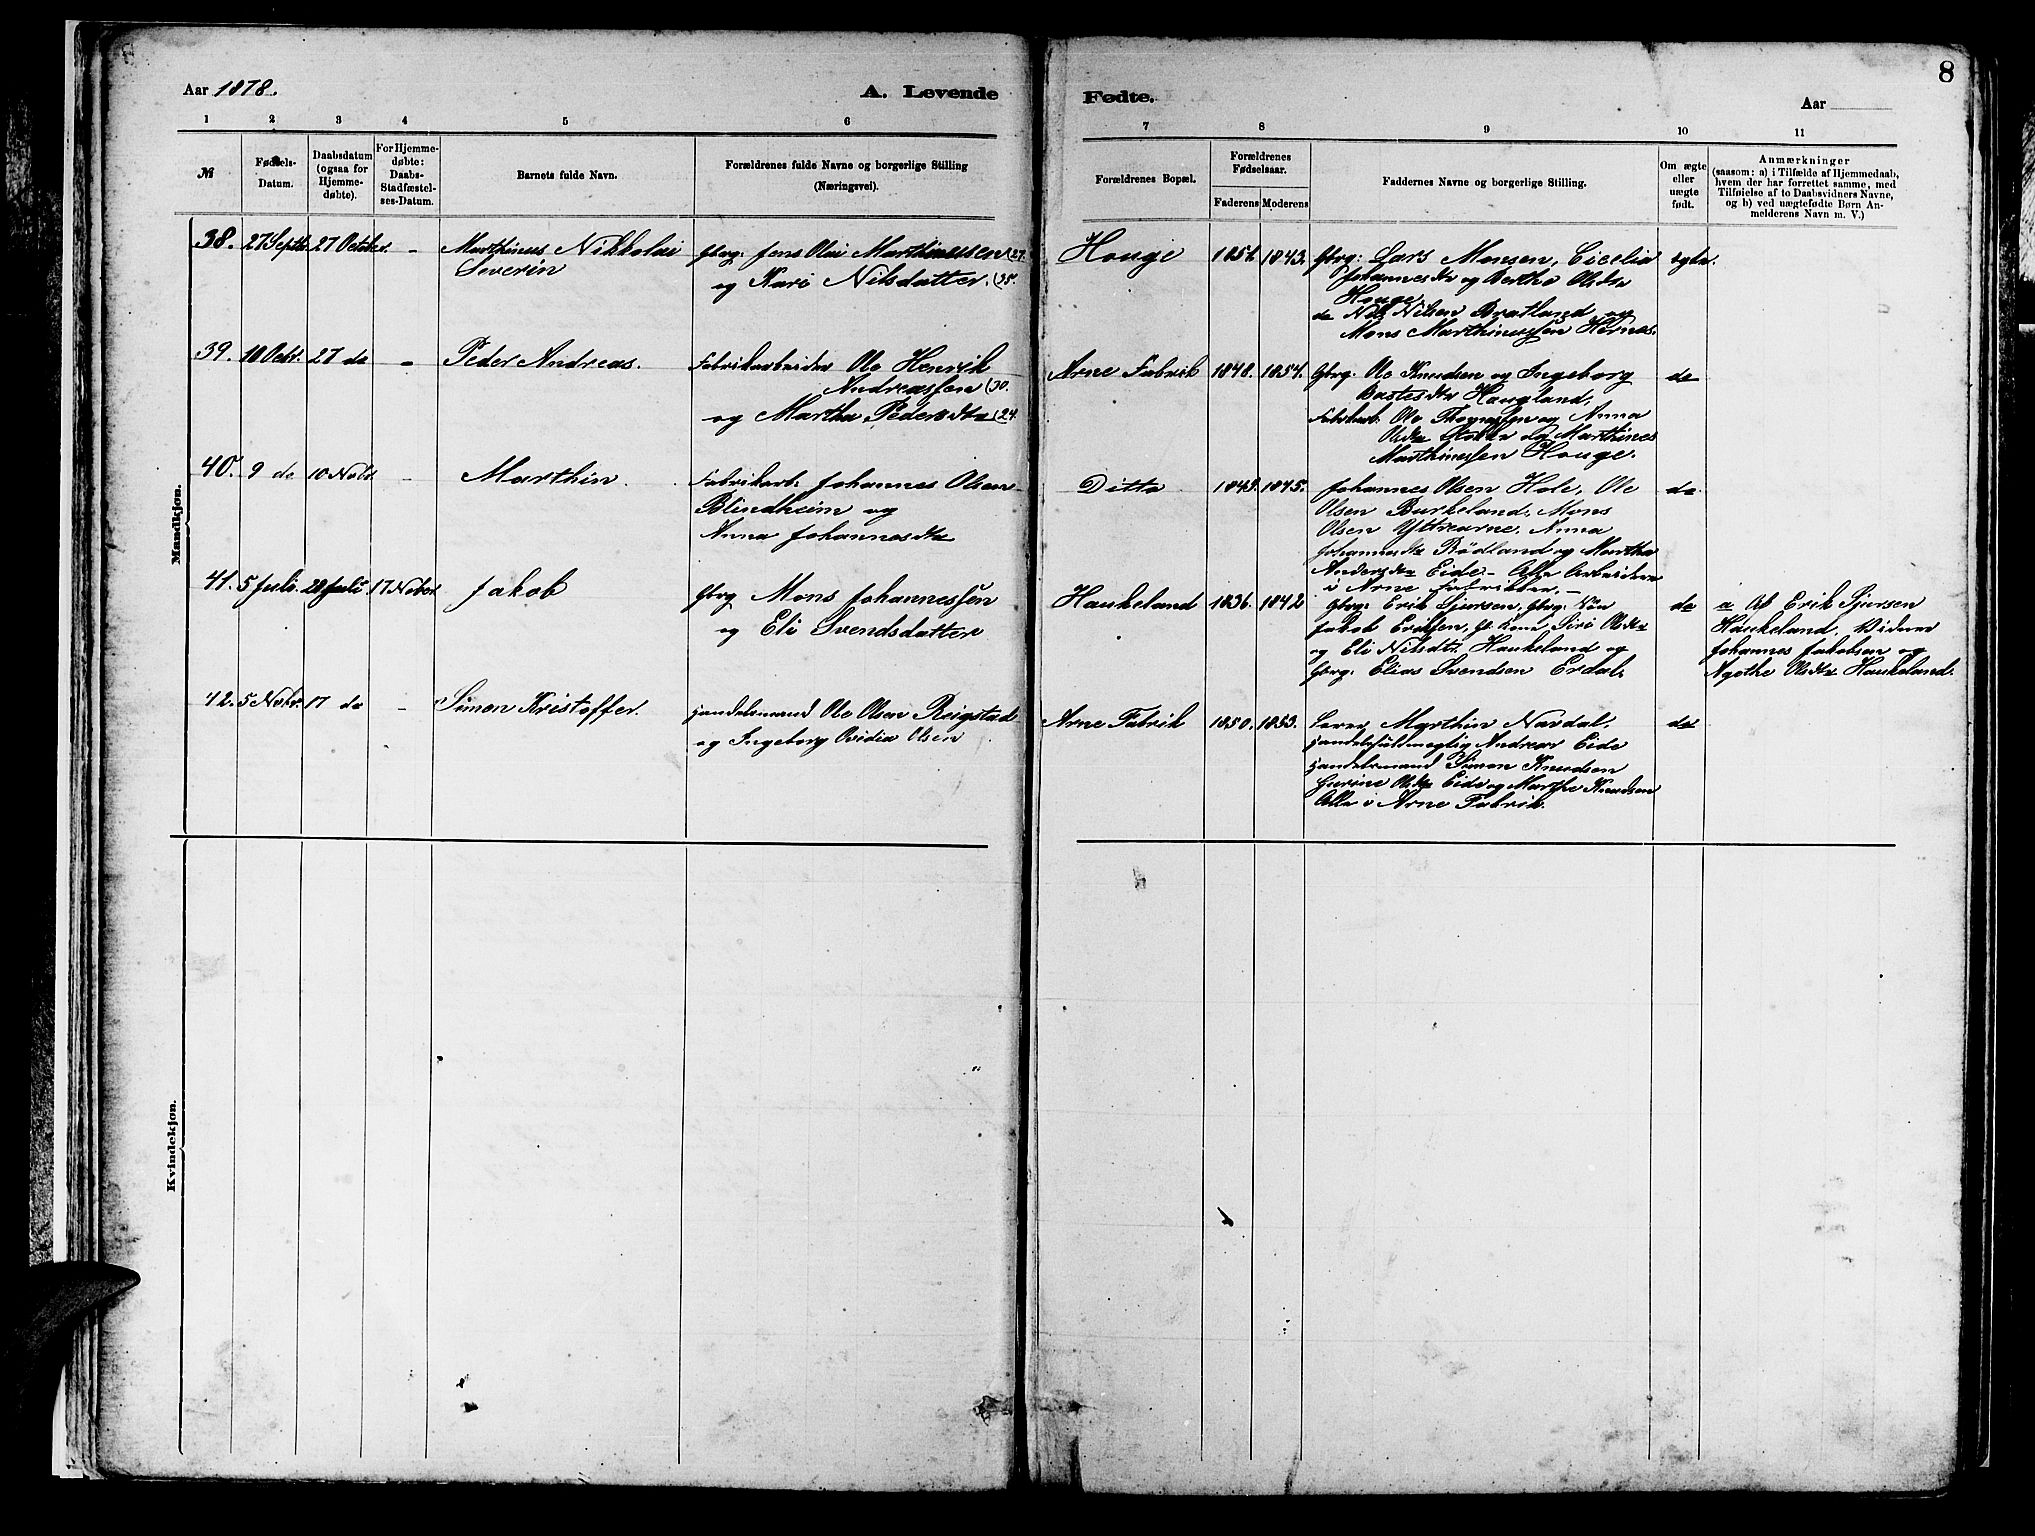 8
Aar 1878.
A. Levende
Fødte.
Aar
1 2 3 4 5 6
7 8 9 10 11
№
Fødsels-
Datum.
Daabsdatum
(ogsaa for
Hjemme-
døbte).
For Hjemme-
døbte:
Daabs-
Stadfæstel-
ses-Datum.
Barnets fulde Navn.
Forældrenes fulde Navne og borgerlige Stilling
(Næringsvei).
Forældrenes Bopæl.
Forældrenes
Fødselsaar.
Faderens
Moderens
Faddernes Navne og borgerlige Stilling.
Om ægte
eller
uægte
født.
Anmærkninger
(saasom: a) i Tilfælde af Hjemmedaab,
hvem der har forrettet samme, med
Tilføielse af to Daabsvidners Navne,
og b) ved uægtefødte Børn An-
melderens Navn m. V.)
Mandkjøn.
38. 27 Septbr. 27 October. -
Marthinus Nikkolai
Severin
Gbrg: Jens Olai Marthinussen (27.
og Kari Nilsdatter. (35.
Houge
1851. 1843.
Gbrg: Lars Monsen, Cicelia
Johannesdtr og Bertha Olsdtr
Houge.
do Nils Nilsen Bratland og
Mons Marthinussen Hernes.
egte.
39. 10 Octr. 27 do -
Peder Andreas.
Fabrikarbeider Ole Henrik
Andreassen (30.
og Martha Pedersdtr (24.
Arne Fabrik
1848. 1854.
Gbrg: Ole Knudsen og Ingeborg
Haugland,
Fabrikarb. Ole og Anna
Olsdtr og Marthines
Marthinessen Houge.
do
40. 9 do 10 Nobr. -
Marthin.
Fabrikarb: Johannes Olsen
Blindheim og
Anna Johannesdtr
Ditto
1843. 1845.
Johannes Olsen Hole, Ole
Olsen Burkeland, Mons
Olsen Yttrearne, Anna
Johannesdtr Rödland og Martha
Andersdtr Eide - Alle Arbeidere
i Arne Fabrikker. -
do
41. 5 Juli. 28 Juli 17 Nobr.
Jakob
Gbrg Mons Johannessen
og Eli Svendsdatter
Haukeland
1836. 1842
Gbrg: Erik Sjursen, Gbrg: Søn
Jakob Eriksen, Gb. Kone Siri Olsdtr
og Eli Nilsdtr Haukeland og
Gbrg: Elias Svendsen Erdal.
do
a Af Erik Sjursen
Haukeland. Vidner
Johannes Jakobsen og
Agathe Olsdtr Haukeland.
42. 5 Nobr. 17 do -
Simon Kristoffer.
Handelsmand Ole Olsen Reigstad
og Ingeborg Ovidia Olsen
Arne Fabrik
1850. 1853.
Lærer Marthin Nordal,
Handelsfuldmegtig Andreas Eide
Handelsmand Simon Knudsen
Olsdtr Eide og Marthe Knudsen
Alle i Arne Fabrik.
do
Kvindekjøn.